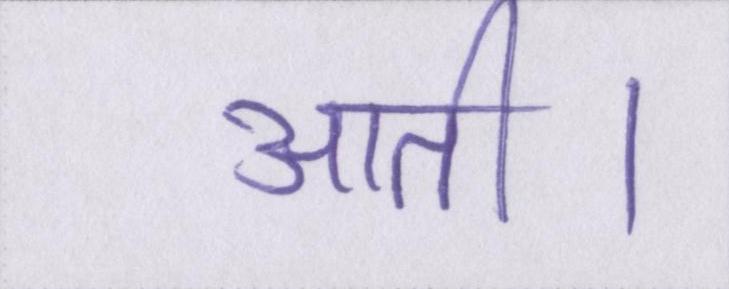 आती।